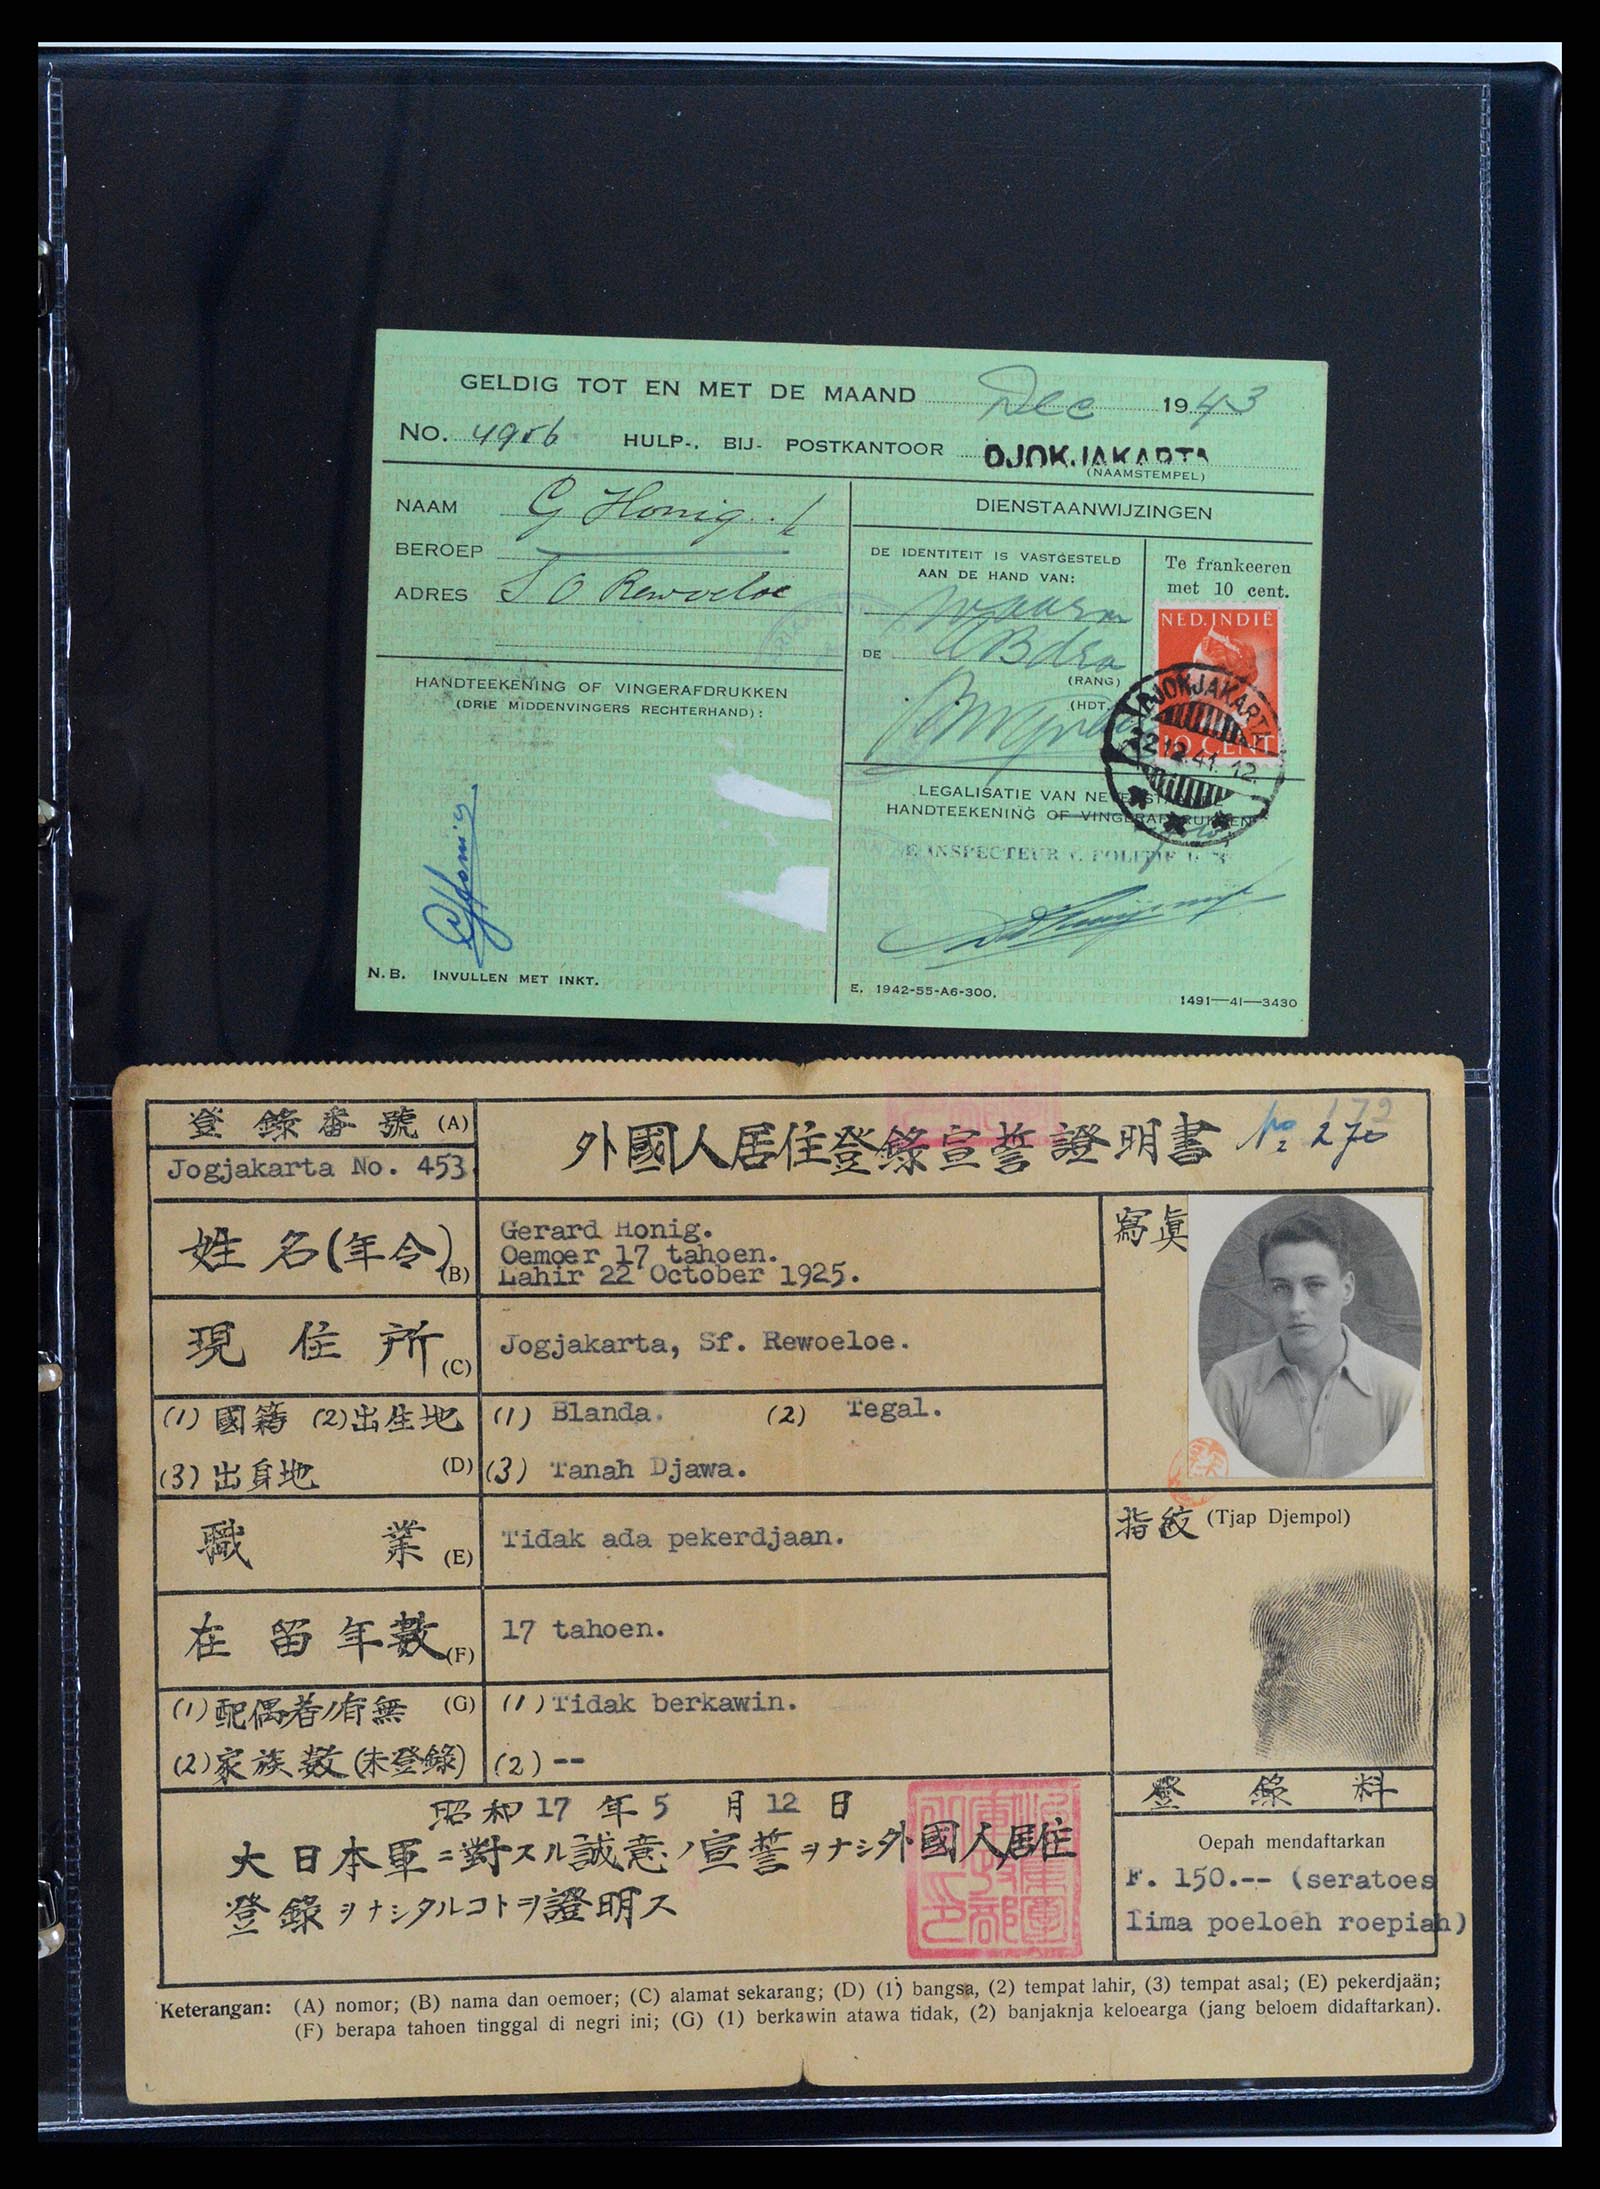 GELDIG TOT EN MET DE MAAND Dec 1943
No. 4956 HULP-, BIJ- POSTKANTOOR DJOKJAKARTA
(NAAMSTEMPEL)
NAAM G Honig
BEROEP
ADRES S O Rewoeloe
HANDTEEKENING OF VINGERAFDRUKKEN
(DRIE MIDDENVINGERS RECHTERHAND):
GHonig
N.B. INVULLEN MET INKT.
DIENSTAANWIJZINGEN
DE IDENTITEIT IS VASTGESTELD
AAN DE HAND VAN:
DE
(RANG)
(HDT.
Te frankeeren
met 10 cent.
NED. INDIË
10 CENT
DJOKJAKARTA
22.12.41. 12.
LEGALISATIE VAN
HANDTEEKENING OF VINGERAFDRUKKEN
INSPECTEUR v. POLITIE
E. 1942-55-A6-300.
1491—41—3430
登錄番號 (A)
Jogjakarta No. 453.
外國人居住登錄宣誓證明書 No 270
姓名(年令) (B)
Gerard Honig.
Oemoer 17 tahoen.
Lahir 22 October 1925.
寫眞
現住所 (C)
Jogjakarta, Sf. Rewoeloe.
(1) 國籍 (2) 出生地
(3) 出身地 (D)
(1) Blanda. (2) Tegal.
(3) Tanah Djawa.
職業 (E)
Tidak ada pekerdjaan.
指紋 (Tjap Djempol)
在留年數 (F)
17 tahoen.
(1) 配偶者ノ有無 (G)
(2) 家族數 (未登錄)
(1) Tidak berkawin.
(2) --
昭和 17 年 5 月 12 日
大日本軍ニ對スル誠意ノ宣誓ヲナシ外國人居住
登錄ヲナシタルコトヲ證明ス
登錄料
Oepah mendaftarkan
F. 150.-- (seratoes
lima poeloeh roepiah)
Keterangan: (A) nomor; (B) nama dan oemoer; (C) alamat sekarang; (D) (1) bangsa, (2) tempat lahir, (3) tempat asal; (E) pekerdjaän;
(F) berapa tahoen tinggal di negri ini; (G) (1) berkawin atawa tidak, (2) banjaknja keloearga (jang beloem didaftarkan).